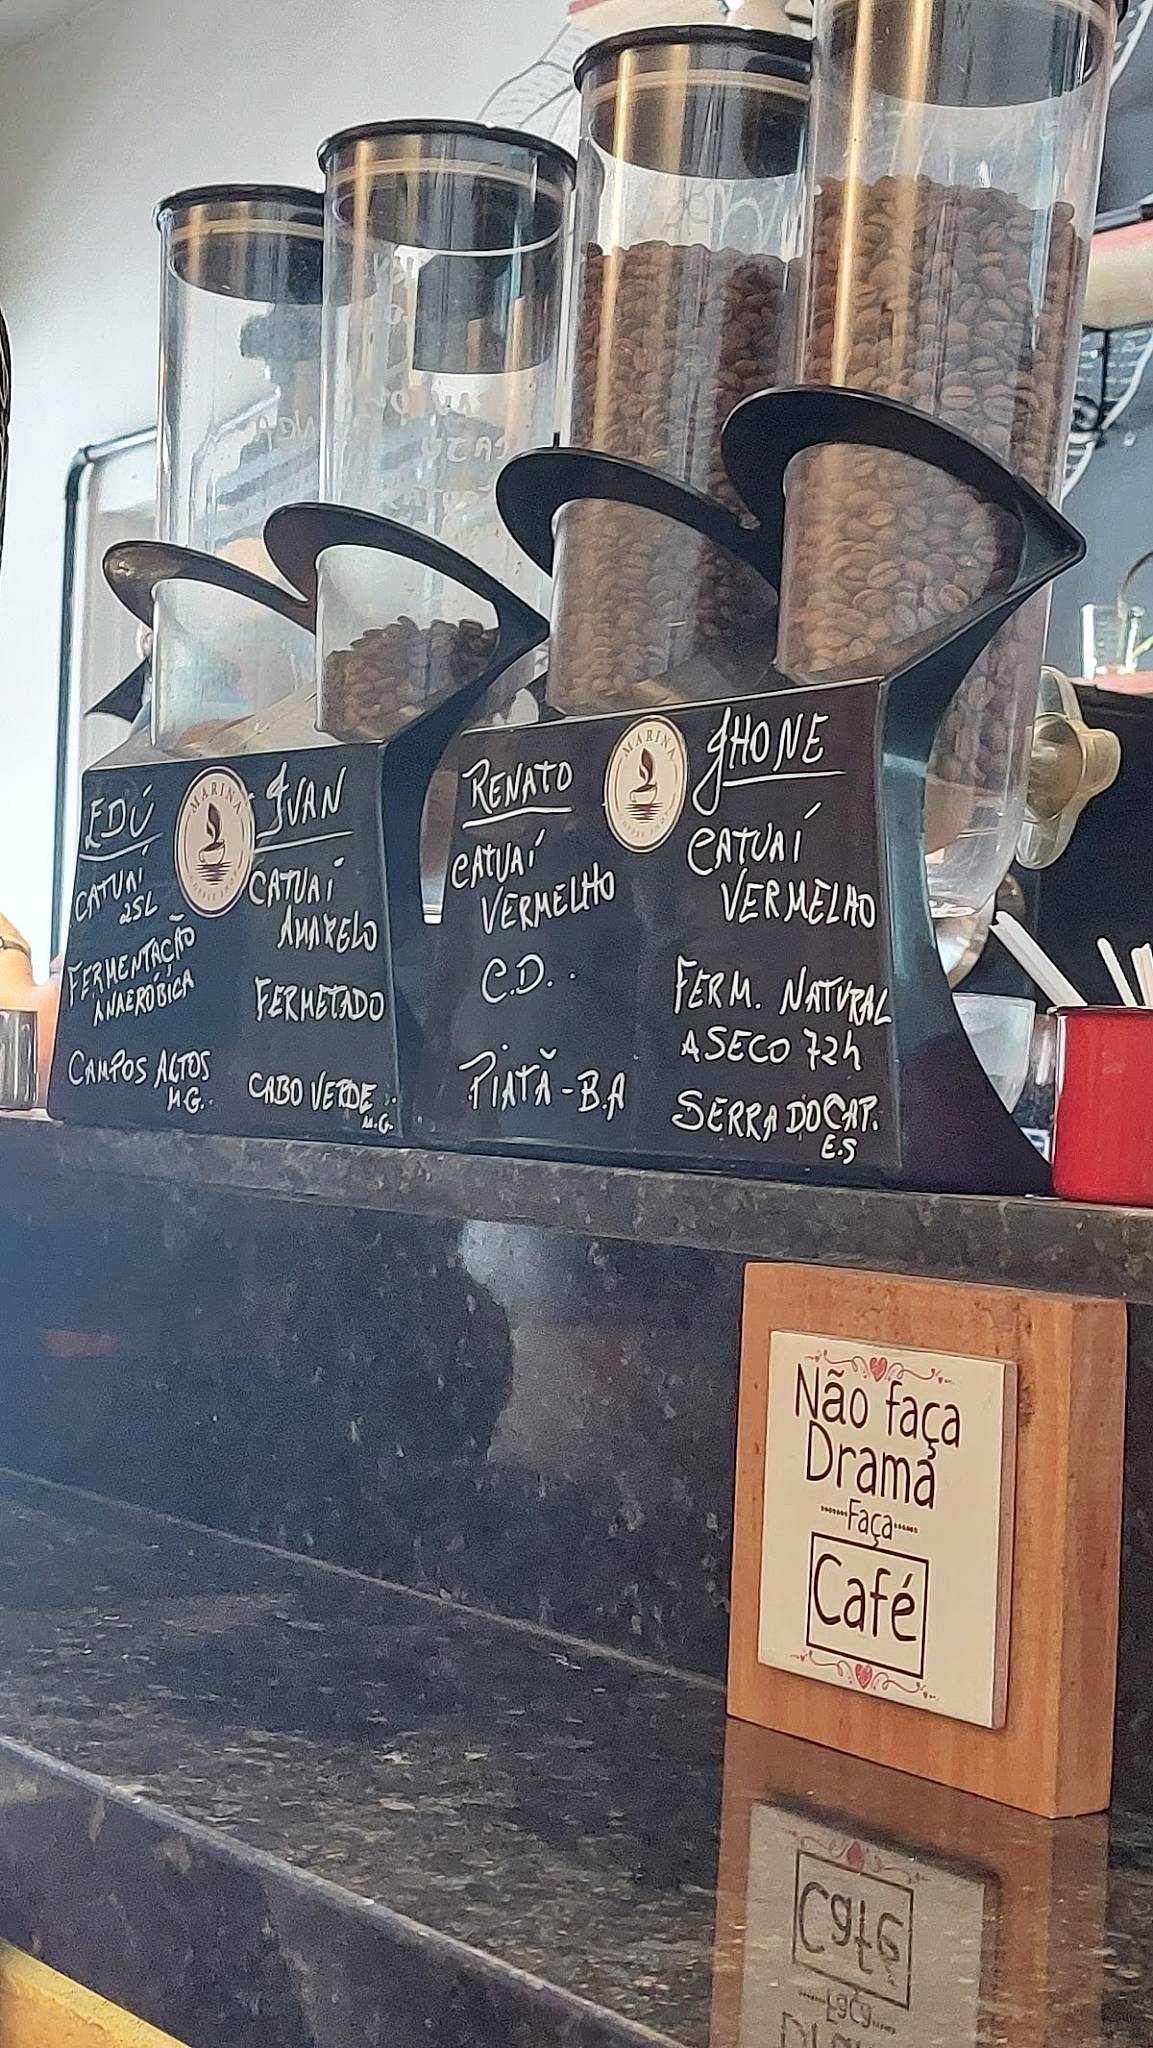 EDÚ
CATUAÍ
2SL
FERMENTAÇÃO
ANAERÓBICA
CAMPOS ALTOS
M.G.
MARINA
IVAN
CATUAÍ
AMARELO
FERMETADO
CABO VERDE
M.G.
RENATO
CATUAÍ
VERMELHO
C.D.
PIATÃ-B.A
MARINA
JHONE
CATUAÍ
VERMELHO
FERM. NATURAL
A SECO 72h
SERRA DO CAP.
E.S
Não faça
Drama
Faça
Café